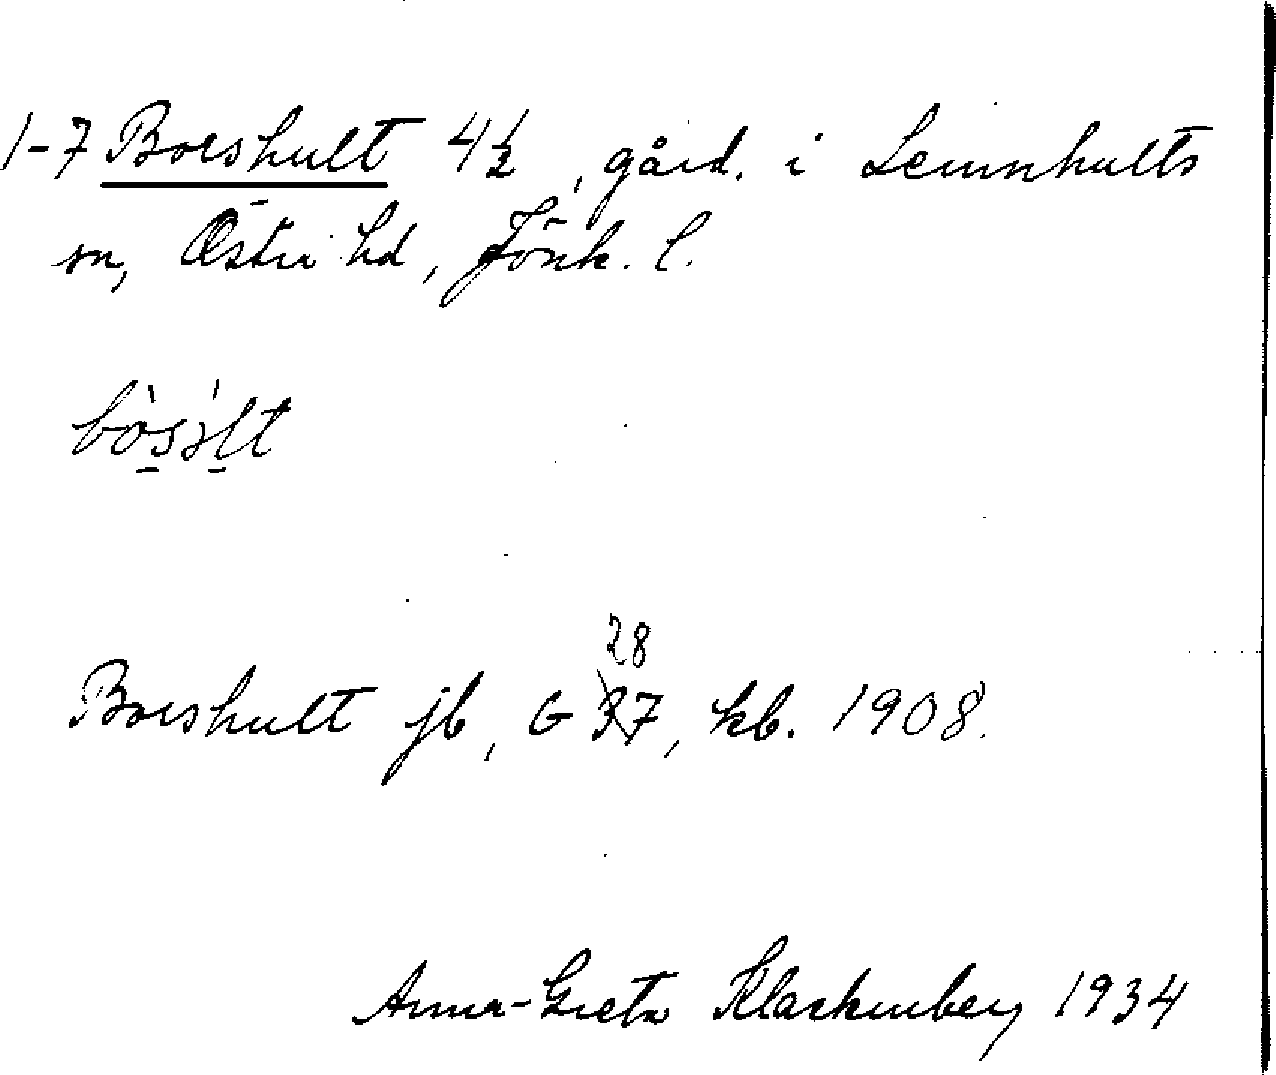 1-7 Borshult 4½, gård. i Lemnhults
sn, Östra hd, Jönk. l.
Borshult jb, G 28 37, kb. 1908.
Anna-Greta Klackenberg 1934